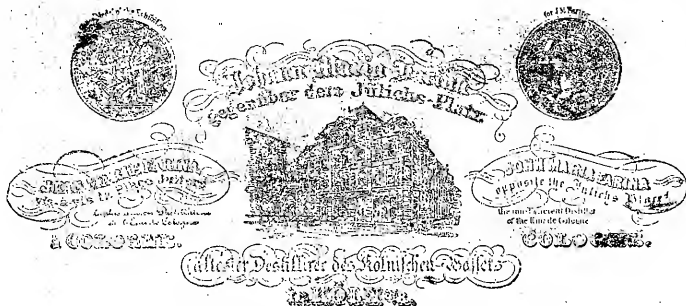 Medal of the Exhibition
for J.M. Farina
Johann Maria Farina
gegenüber dem Jülichs-Platz
JEAN MARIE FARINA
vis-à-vis la place Juliers
à COLOGNE.
JOHN MARIA FARINA
opposite the Julichs Place
the most ancient Distiller
of the Eau de Cologne
COLOGNE.
ältester Destillirer des Kölnischen-Wassers
in KÖLN